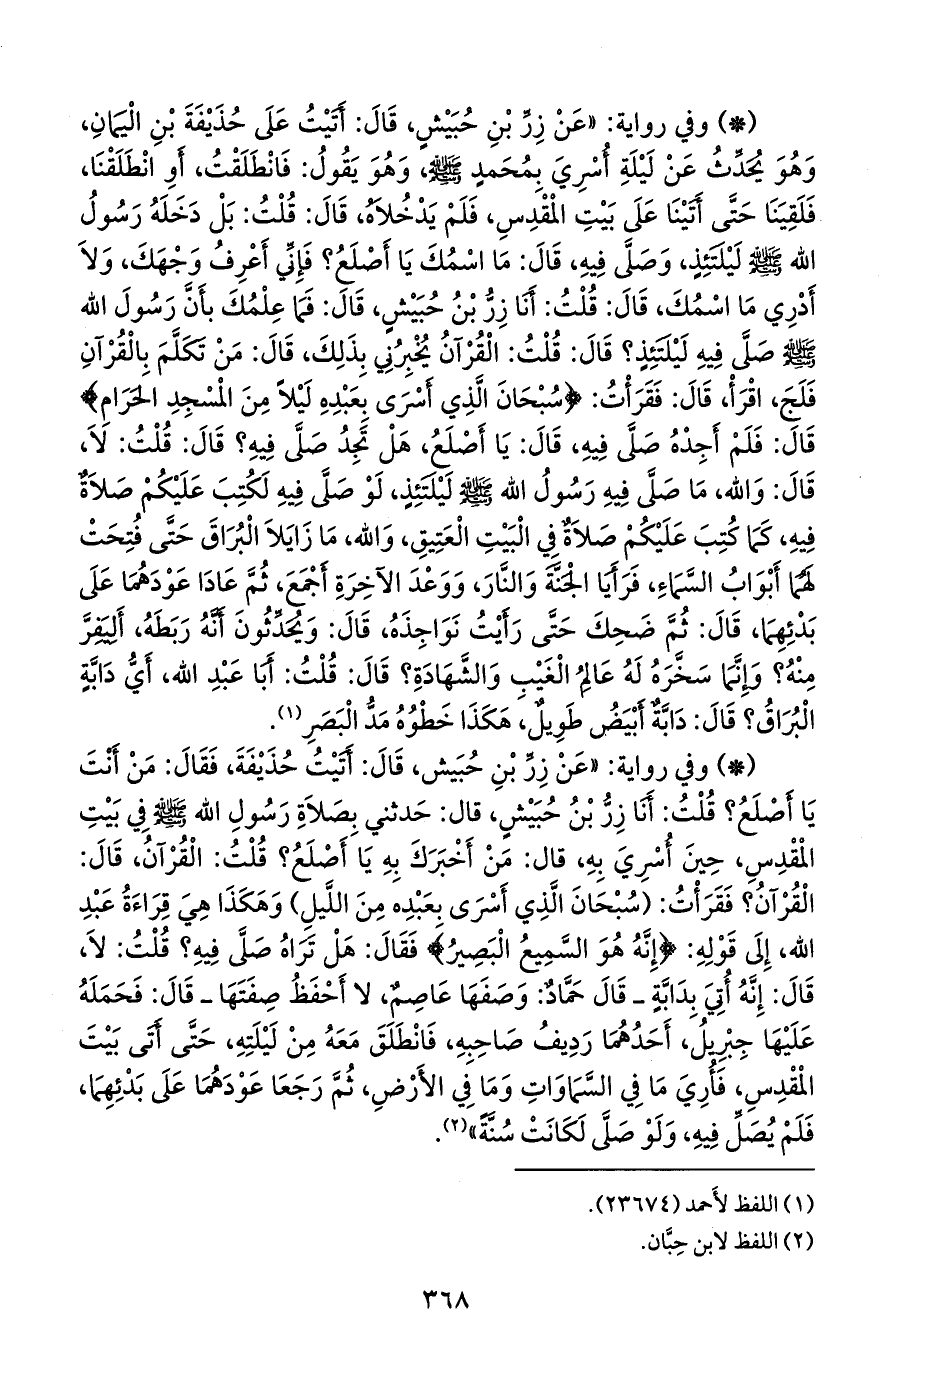 (*) وفي رواية: «عَنْ زِرِّ بْنِ حُبَيْشٍ، قَالَ: أَتَيْتُ عَلَى حُذَيْفَةَ بْنِ الْيَمَانِ،
وَهُوَ يُحَدِّثُ عَنْ لَيْلَةِ أُسْرِيَ بِمُحَمدٍ ﷺ، وَهُوَ يَقُولُ: فَانْطَلَقْتُ، أَوِ انْطَلَقْنَا،
فَلَقِيَنَا حَتَّى أَتَيْنَا عَلَى بَيْتِ الْمَقْدِسِ، فَلَمْ يَدْخُلاَهُ، قَالَ: قُلْتُ: بَلْ دَخَلَهُ رَسُولُ
الله ﷺ لَيْلَتَئِذٍ، وَصَلَّى فِيهِ، قَالَ: مَا اسْمُكَ يَا أَصْلَعُ؟ فَإِنِّي أَعْرِفُ وَجْهَكَ، وَلاَ
أَدْرِي مَا اسْمُكَ، قَالَ: قُلْتُ: أَنَا زِرُّ بْنُ حُبَيْشٍ، قَالَ: فَمَا عِلْمُكَ بِأَنَّ رَسُولَ الله
ﷺ صَلَّى فِيهِ لَيْلَتَئِذٍ؟ قَالَ: قُلْتُ: الْقُرْآنُ يُخْبِرُنِي بِذَلِكَ، قَالَ: مَنْ تَكَلَّمَ بِالْقُرْآنِ
فَلَجَ، اقْرَأْ، قَالَ: فَقَرَأْتُ: ﴿سُبْحَانَ الَّذِي أَسْرَى بِعَبْدِهِ لَيْلاً مِنَ الْمَسْجِدِ الحَرَامِ﴾
قَالَ: فَلَمْ أَجِدْهُ صَلَّى فِيهِ، قَالَ: يَا أَصْلَعُ، هَلْ تَجِدُ صَلَّى فِيهِ؟ قَالَ: قُلْتُ: لَا،
قَالَ: وَالله، مَا صَلَّى فِيهِ رَسُولُ الله ﷺ لَيْلَتَئِذٍ، لَوْ صَلَّى فِيهِ لَكُتِبَ عَلَيْكُمْ صَلاَةٌ
فِيهِ، كَمَا كُتِبَ عَلَيْكُمْ صَلاَةٌ فِي الْبَيْتِ الْعَتِيقِ، وَالله، مَا زَايَلاَ الْبُرَاقَ حَتَّى فُتِحَتْ
لَهُمَا أَبْوَابُ السَّمَاءِ، فَرَأَيَا الْجَنَّةَ وَالنَّارَ، وَوَعْدَ الآخِرَةِ أَجْمَعَ، ثُمَّ عَادَا عَوْدَهُمَا عَلَى
بَدْئِهِمَا، قَالَ: ثُمَّ ضَحِكَ حَتَّى رَأَيْتُ نَوَاجِذَهُ، قَالَ: وَيُحَدِّثُونَ أَنَّهُ رَبَطَهُ، أَلِيَفِرَّ
مِنْهُ؟ وَإِنَّمَا سَخَّرَهُ لَهُ عَالِمُ الْغَيْبِ وَالشَّهَادَةِ؟ قَالَ: قُلْتُ: أَبَا عَبْدِ الله، أَيُّ دَابَّةٍ
الْبُرَاقُ؟ قَالَ: دَابَّةٌ أَبْيَضُ طَوِيلٌ، هَكَذَا خَطْوُهُ مَدُّ الْبَصَرِ (١).
(*) وفي رواية: «عَنْ زِرِّ بْنِ حُبَيش، قَالَ: أَتَيْتُ حُذَيْفَةَ، فَقَالَ: مَنْ أَنْتَ
يَا أَصْلَعُ؟ قُلْتُ: أَنَا زِرُّ بْنُ حُبَيْشٍ، قال: حَدثني بِصَلاَةِ رَسُولِ الله ﷺ فِي بَيْتِ
الْمَقْدِسِ، حِينَ أُسْرِيَ بِهِ، قال: مَنْ أَخْبَرَكَ بِهِ يَا أَصْلَعُ؟ قُلْتُ: الْقُرْآنُ، قَالَ:
الْقُرْآنُ؟ فَقَرَأْتُ: (سُبْحَانَ الَّذِي أَسْرَى بِعَبْدِه مِنَ اللَّيلِ) وَهَكَذَا هِيَ قِرَاءَةُ عَبْدِ
الله، إِلَى قَوْلِهِ: ﴿إِنَّهُ هُوَ السَّمِيعُ الْبَصِيرُ﴾ فَقَالَ: هَلْ تَرَاهُ صَلَّى فِيهِ؟ قُلْتُ: لاَ،
قَالَ: إِنَّهُ أُتِيَ بِدَابَّةٍ ـ قَالَ حَمَّادٌ: وَصَفَهَا عَاصِمٌ، لا أَحْفَظُ صِفَتَهَا ـ قَالَ: فَحَمَلَهُ
عَلَيْهَا جِبْرِيلُ، أَحَدُهُمَا رَدِيفُ صَاحِبِهِ، فَانْطَلَقَ مَعَهُ مِنْ لَيْلَتِهِ، حَتَّى أَتَى بَيْتَ
الْمَقْدِسِ، فَأُرِيَ مَا فِي السَّمَاوَاتِ وَمَا فِي الأَرْضِ، ثُمَّ رَجَعَا عَوْدَهُمَا عَلَى بَدْئِهِمَا،
فَلَمْ يُصَلِّ فِيهِ، وَلَوْ صَلَّى لَكَانَتْ سُنَّةً»(٢).
(١) اللفظ لأَحمد (٢٣٦٧٤).
(٢) اللفظ لابن حِبَّان.
٣٦٨